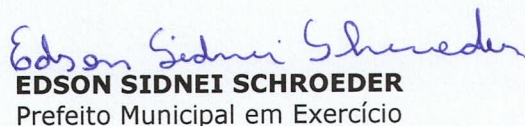 Edson Sidnei Schroeder
EDSON SIDNEI SCHROEDER
Prefeito Municipal em Exercício